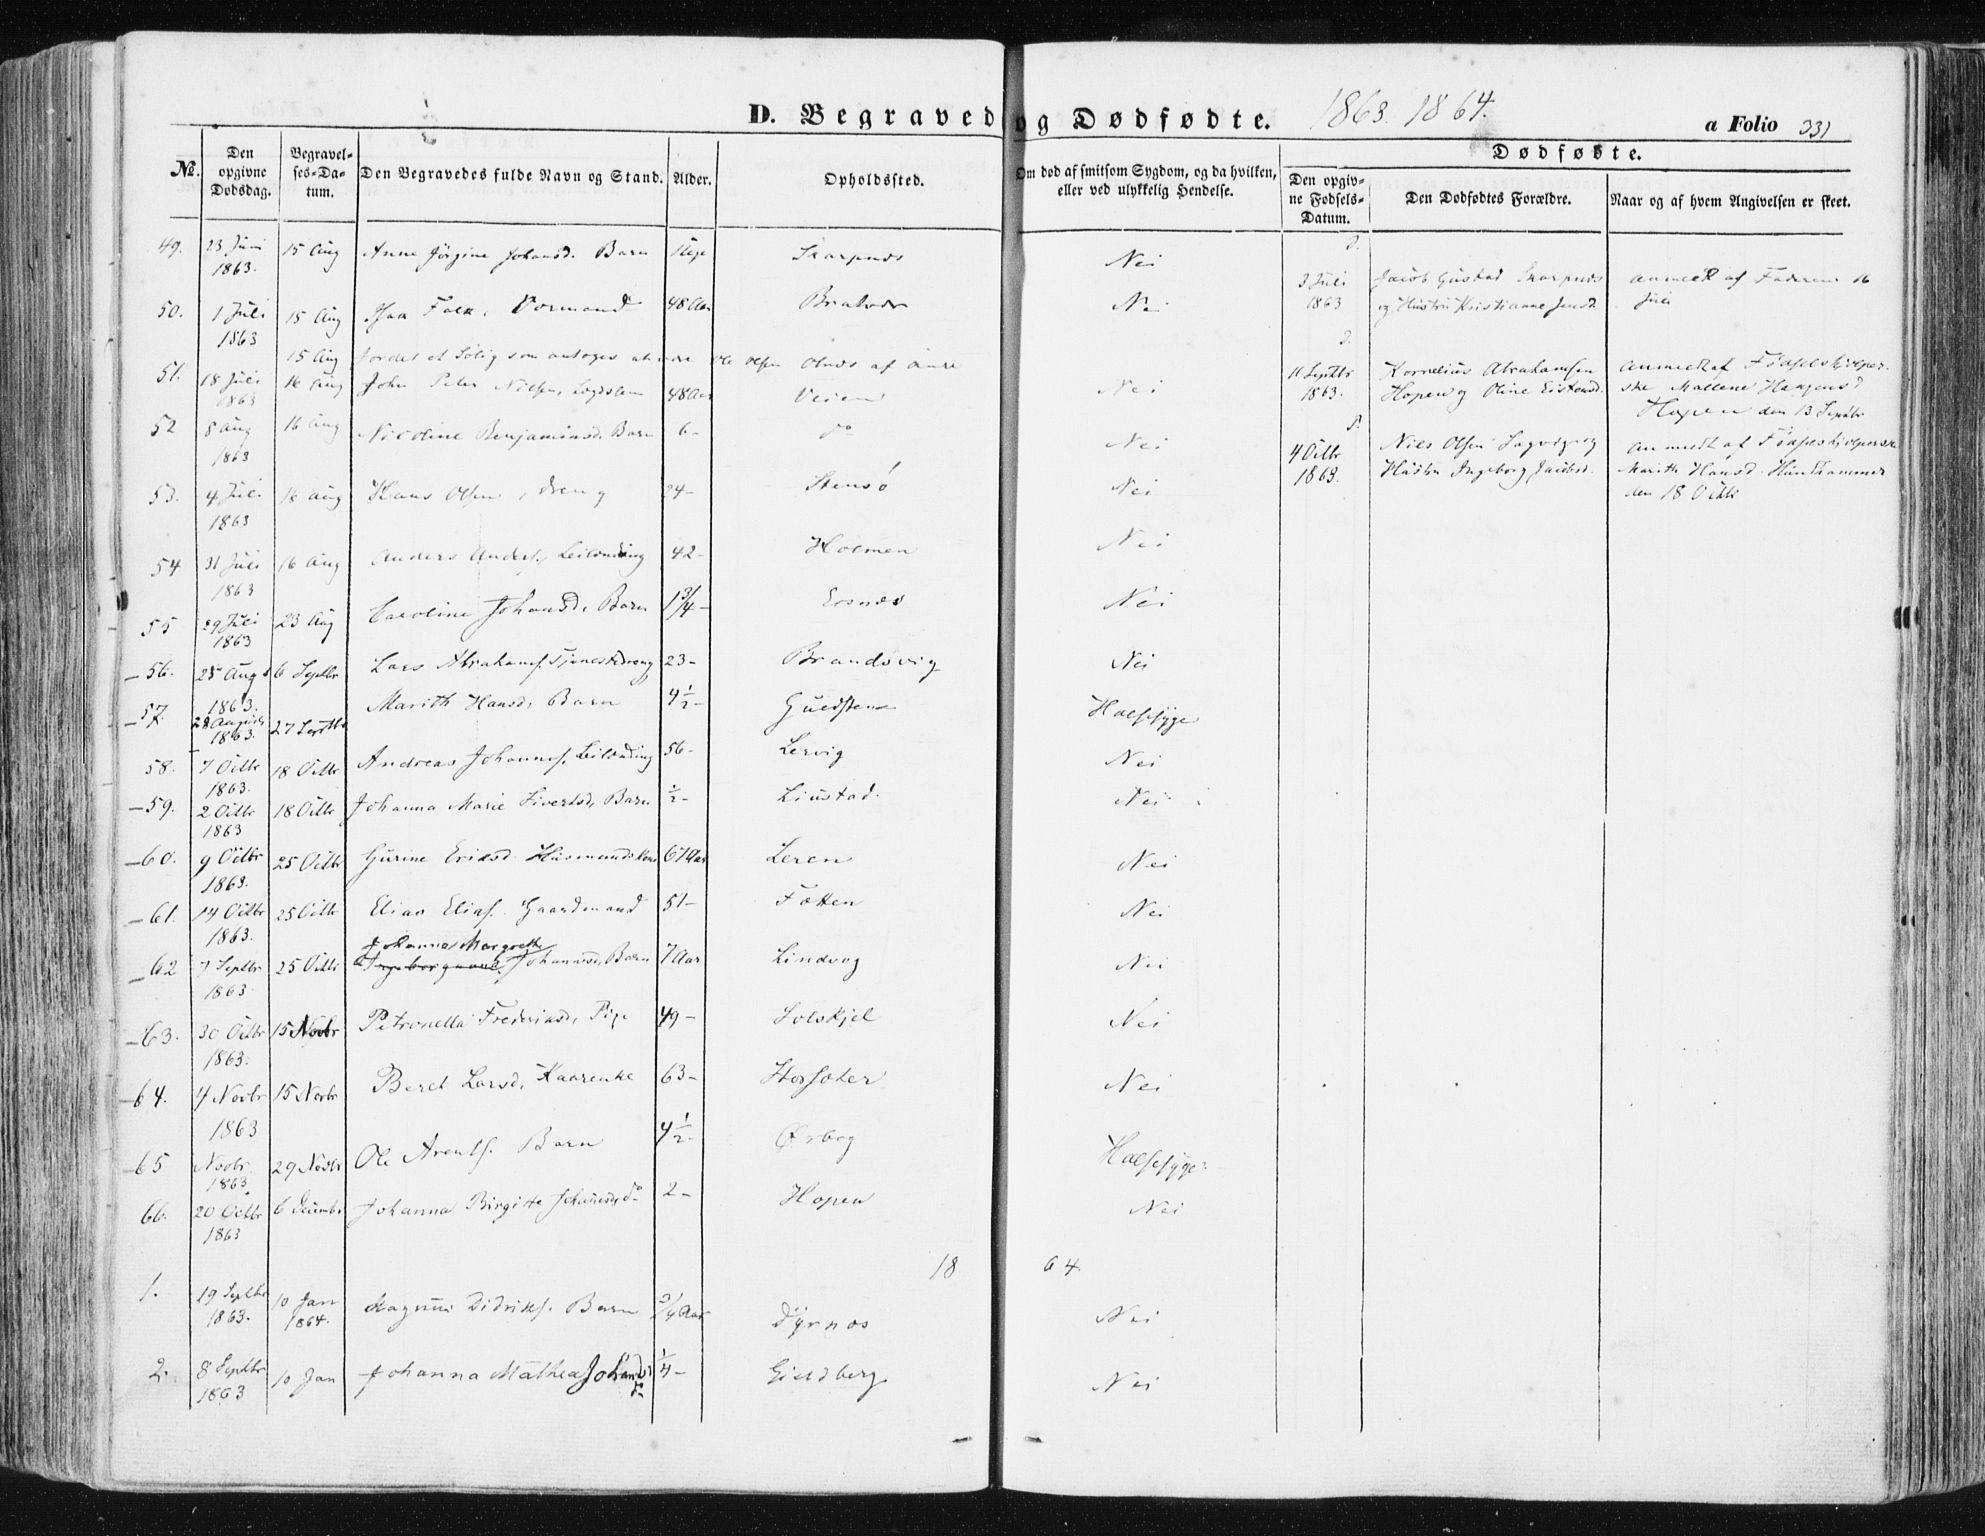 D. Begravede og Dødfødte. 1863. 1864.
a Folio 331
No.
Den opgivne Dødsdag.
Begravelses-Datum.
Den Begravedes fulde Navn og Stand.
Alder.
Opholdssted.
Om død af smitsom Sygdom, og da hvilken, eller ved ulykkelig Hendelse.
Dødfødte.
Den opgivne Fødsels-Datum.
Den Dødfødtes Forældre.
Naar og af hvem Angivelsen er skeet.
49. 23 Juni 1863. 15 Aug Anne Jørgine Johansd. Barn Skarpnes Nei
50. 1 Juli 1863 15 Aug Falk, 48 Aar Nei
15 Aug Jordet et Liig som antages at være Ole Olsen Olnes af Aure
51. 18 Juli 1863 16 Aug John Peter Nilsen, 48 Aar Veien Nei
52 8 Aug 1863 16 Aug Nicoline Benjaminsd. Barn 6- do Nei
53. 4 Juli 1863 16 Aug Hans Olsen, dreng 24- Stensø Nei
54 31 Juli 1863 16 Aug Anders Anders. Leilending 42- Holmen Nei
55 29 Juli 1863 23 Aug Caroline Johansd. Barn 1 3/4- Nei
56. 25 Aug 1863. 6 Septbr Lars Abrahams. Tjenestedreng 23- Brandsvig Nei
57. 28 August 1863. 27 Septbr Marith Hansd. Barn 4 1/2- Halssyge
58. 7 Octbr 1863. 18 Octbr Andreas Johannes. Leilending 56- Lervig Nei
59. 2 Octbr 1863 18 Octbr Johanna Marie Sivertsd. Barn 1/2- Liustad Nei
60. 9 Octbr 1863. 25 Octbr Gurine Eriksd. Husmandskone 67 Aar Leren Nei
61. 14 Octbr 1863. 25 Octbr Elias Elias. Gaardmand 51- Fætten Nei
62 7 Septbr 1863. 25 Octbr Johanna Margrethe Johannesd. Barn 7 Aar Lindvog Nei
63. 30 Octbr 1863. 15 Novbr Petronella Frederiksd. Pige 49- Solskjel Nei
64. 4 Novbr 1863 15 Novbr Beret Larsd. Kaarenke 63- Nei
65 Novbr. 1863. 29 Novbr Ole Arents. Barn 4 1/2- Ørbog Halssyge
66. 20 Octbr 1863 6 Decembr Johanna Birgitte Johannesd. do 2- Hopen Nei
1864.
1. 19 Septbr 1863. 10 Jan 1864. Magnus Didriks. Barn 3/4 Aar Dyrnæs Nei
2. 8 Septbr 1863 10 Jan Johanna Mathea Johansd. do 1/4- Nei
3 Juli 1863
Jacob Gustad Skarpnes
og Hustru Kristianne Jensd.
anmeldt af Faderen 16
Juli
11 Septbr 1863.
Kornelius Abrahamsen
Hopen og Oline Eistensd.
anmeldt af Fødselshjelperske
Mallene Haagensd
Hopen den 13 Septbr
4 Octbr 1863.
Niels Olsen Sagvig og
Hustru Ingeborg Jacobsd.
anmeldt af Fødselshjelperske
Marith Hansd. Hundhammer
den 18 Octbr